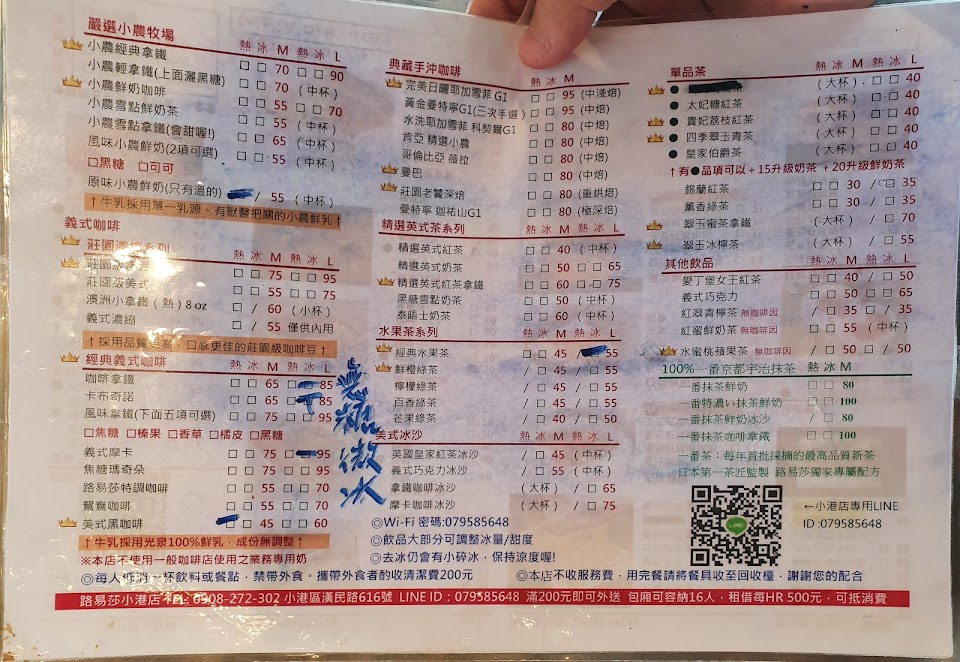 嚴選小農牧場 熱 冰 M 熱 冰 L
小農經典拿鐵 □ □ 70 □ □ 90
小農輕拿鐵(上面灑黑糖) □ □ 70 (中杯)
小農鮮奶咖啡 □ □ 55 □ □ 70
小農雪點鮮奶茶 / □ 65 (中杯)
小農雪點拿鐵(會甜喔!)
風味小農鮮奶(2項可選) □ □ 55 (中杯)
□黑糖 □可可
原味小農鮮奶(只有溫的) / 55 (中杯)
↑牛乳採用單一乳源、有獸醫把關的小農鮮乳↑
義式咖啡
莊園 系列 熱 冰 M 熱 冰 L
□ □ 75 □ □ 95
莊園級美式 □ □ 55 □ □ 75
澳洲小拿鐵(熱) 8 oz □ / 60 (小杯)
義式濃縮 □ / 55 僅供內用
↑採用品質 更佳的莊園級咖啡豆↑
經典義式咖啡 熱 冰 M 熱 冰 L
咖啡拿鐵 □ □ 65 85
卡布奇諾 □ □ 65 85
風味拿鐵(下面五項可選) □ □ 75 □ 95
□焦糖 □榛果 □香草 □橘皮 □黑糖
義式摩卡 □ □ 75 95
焦糖瑪奇朵 □ □ 75 □ □ 95
路易莎特調咖啡 □ □ 55 □ □ 70
鴛鴦咖啡 □ □ 55 □ □ 70
美式黑咖啡 □ 45 □ □ 60
↑牛乳採用光泉100%鮮乳,成份無調整↑
※本店不使用一般咖啡店使用之業務專用奶
無糖微冰
典藏手沖咖啡 熱 冰 M
完美日曬耶加雪菲 G1 □ □ 95 (中淺焙)
黃金曼特寧G1(三次手選) □ □ 95 (中焙)
水洗耶加雪菲 科契爾G1 □ □ 80 (中焙)
肯亞 精選小農 □ □ 80 (中焙)
哥倫比亞 薇拉 □ □ 80 (中焙)
曼巴 □ □ 80 (中焙)
莊園老饕深焙 □ □ 80 (重烘焙)
曼特寧 迦祐山G1 □ □ 80 (極深焙)
精選英式茶系列 熱 冰 M 熱 冰 L
精選英式紅茶 □ □ 40 (中杯)
精選英式奶茶 □ □ 50 □ □ 65
精選英式紅茶拿鐵 □ □ 60 □ □ 75
黑糖雪點奶茶 □ □ 50 (中杯)
泰晤士奶茶 □ □ 60 (中杯)
水果茶系列 熱 冰 M 熱 冰 L
經典水果茶 □ □ 45 / 55
鮮橙綠茶 / □ 45 / □ 55
檸檬綠茶 / □ 45 / □ 55
百香綠茶 / □ 45 / □ 55
芒果綠茶 / □ 45 / □ 55
美式冰沙 熱 冰 M 熱 冰 L
英國皇家紅茶冰沙 / □ 45 (中杯)
義式巧克力冰沙 / □ 55 (中杯)
拿鐵咖啡冰沙 (大杯) / □ 65
摩卡咖啡冰沙 (大杯) / □ 75
◎Wi-Fi 密碼:079585648
◎飲品大部分可調整冰量/甜度
◎去冰仍會有小碎冰,保持涼度喔!
單品茶 熱 冰 M 熱 冰 L
● (大杯) □ □ 40
● 太妃糖紅茶 (大杯) □ □ 40
● 貴妃荔枝紅茶 (大杯) □ □ 40
● 四季翠玉青茶 (大杯) □ □ 40
● 皇家伯爵茶 (大杯) □ □ 40
↑有●品項可以+15升級奶茶 +20升級鮮奶茶
錫蘭紅茶 □ □ 30 / □ 35
薰香綠茶 □ □ 30 / □ 35
翠玉蜜茶拿鐵 (大杯) / □ 70
翠玉冰檸茶 (大杯) / □ 55
其他飲品 熱 冰 M 熱 冰 L
愛丁堡女王紅茶 □ □ 40 / □ 50
義式巧克力 □ □ 50 □ □ 65
紅翠青檸茶 無咖啡因 / □ 35 / □ 35
紅蜜鮮奶茶 無咖啡因 □ □ 55 (中杯)
水蜜桃蘋果茶 無咖啡因 / □ 50 / □ 50
100%一番京都宇治抹茶 熱 冰 M
一番抹茶鮮奶 □ □ 80
一番特濃い抹茶鮮奶 □ □ 100
一番抹茶鮮奶冰沙 □ 80
一番抹茶咖啡拿鐵 □ □ 100
一番茶:每年首批採摘的最高品質新茶
日本第一茶匠監製 路易莎獨家專屬配方
LINE
←小港店專用LINE
ID :079585648
◎每人低消一杯飲料或餐點,禁帶外食,攜帶外食者酌收清潔費200元 ◎本店不收服務費,用完餐請將餐具收至回收檯,謝謝您的配合
路易莎小港店 TEL: 0908-272-302 小港區漢民路616號 LINE ID:079585648 滿200元即可外送 包廂可容納16人,租借每HR 500元,可抵消費